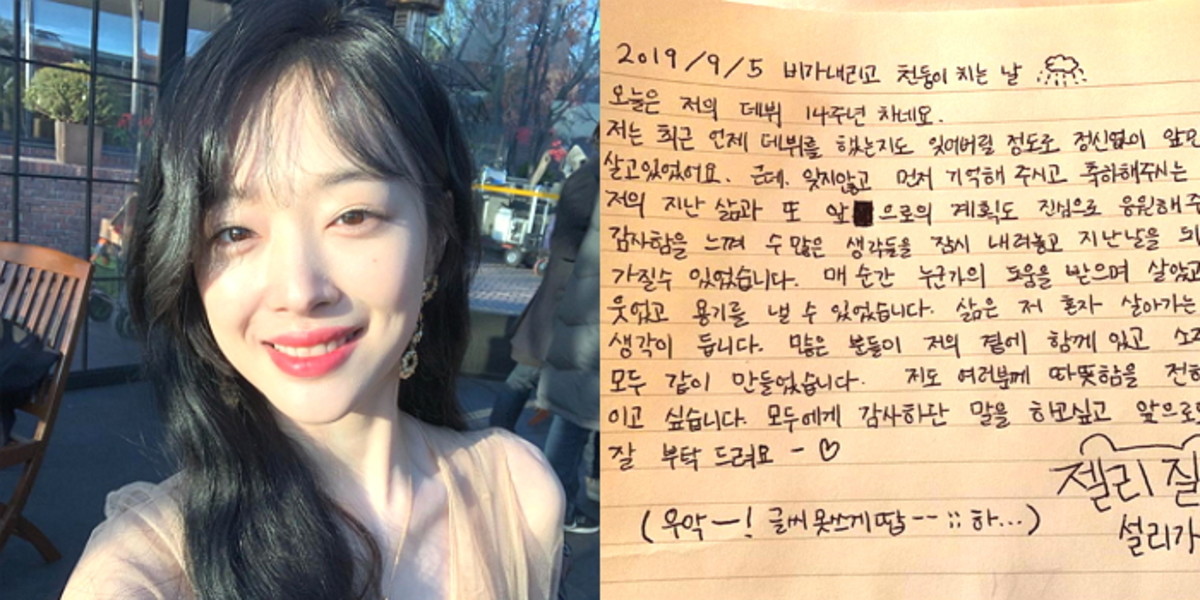 2019/9/5 비가내리고 천둥이 치는 날
오늘은 저의 데뷔 14주년 차네요.
저는 최근 언제 데뷔를 했는지도 잊어버릴 정도로 정신없이 앞만
살고있었어요. 근데. 잊지않고 먼저 기억해 주시고 축하해주시는
저의 지난 삶과 또 앞 으로의 계획도 진심으로 응원해주
감사함을 느껴 수많은 생각들을 잠시 내려놓고 지난날을 되
가질수 있었습니다. 매 순간 누군가의 도움을 받으며 살았고
웃었고 용기를 낼 수 있었습니다. 삶은 저 혼자 살아가는
생각이 듭니다. 많은 분들이 저의 곁에 함께 있고 소
모두 같이 만들었습니다. 저도 여러분께 따뜻함을 전하
이고 싶습니다. 모두에게 감사하단 말을 하고싶고 앞으로
잘 부탁 드려요 - ♡
젤리 질
설리가
(우악ㅡ! 글씨 못쓰게땁 -- ;; 하...)